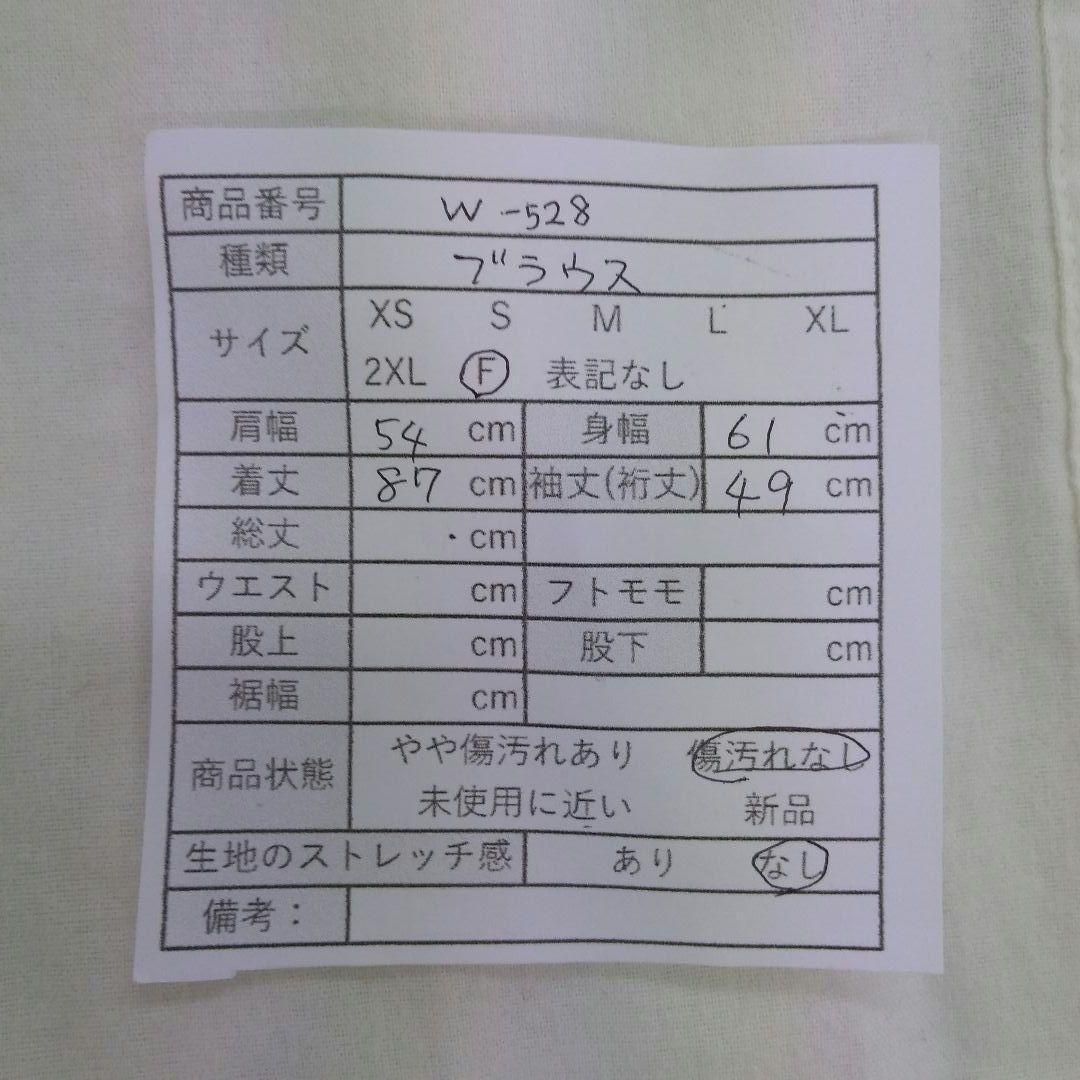 商品番号 W-528
種類 ブラウス
サイズ XS S M L XL
2XL F 表記なし
肩幅 54 cm 身幅 61 cm
着丈 87 cm 袖丈(裄丈) 49 cm
総丈 cm
ウエスト cm フトモモ cm
股上 cm 股下 cm
裾幅 cm
商品状態 やや傷汚れあり 傷汚れなし
未使用に近い 新品
生地のストレッチ感 あり なし
備考：